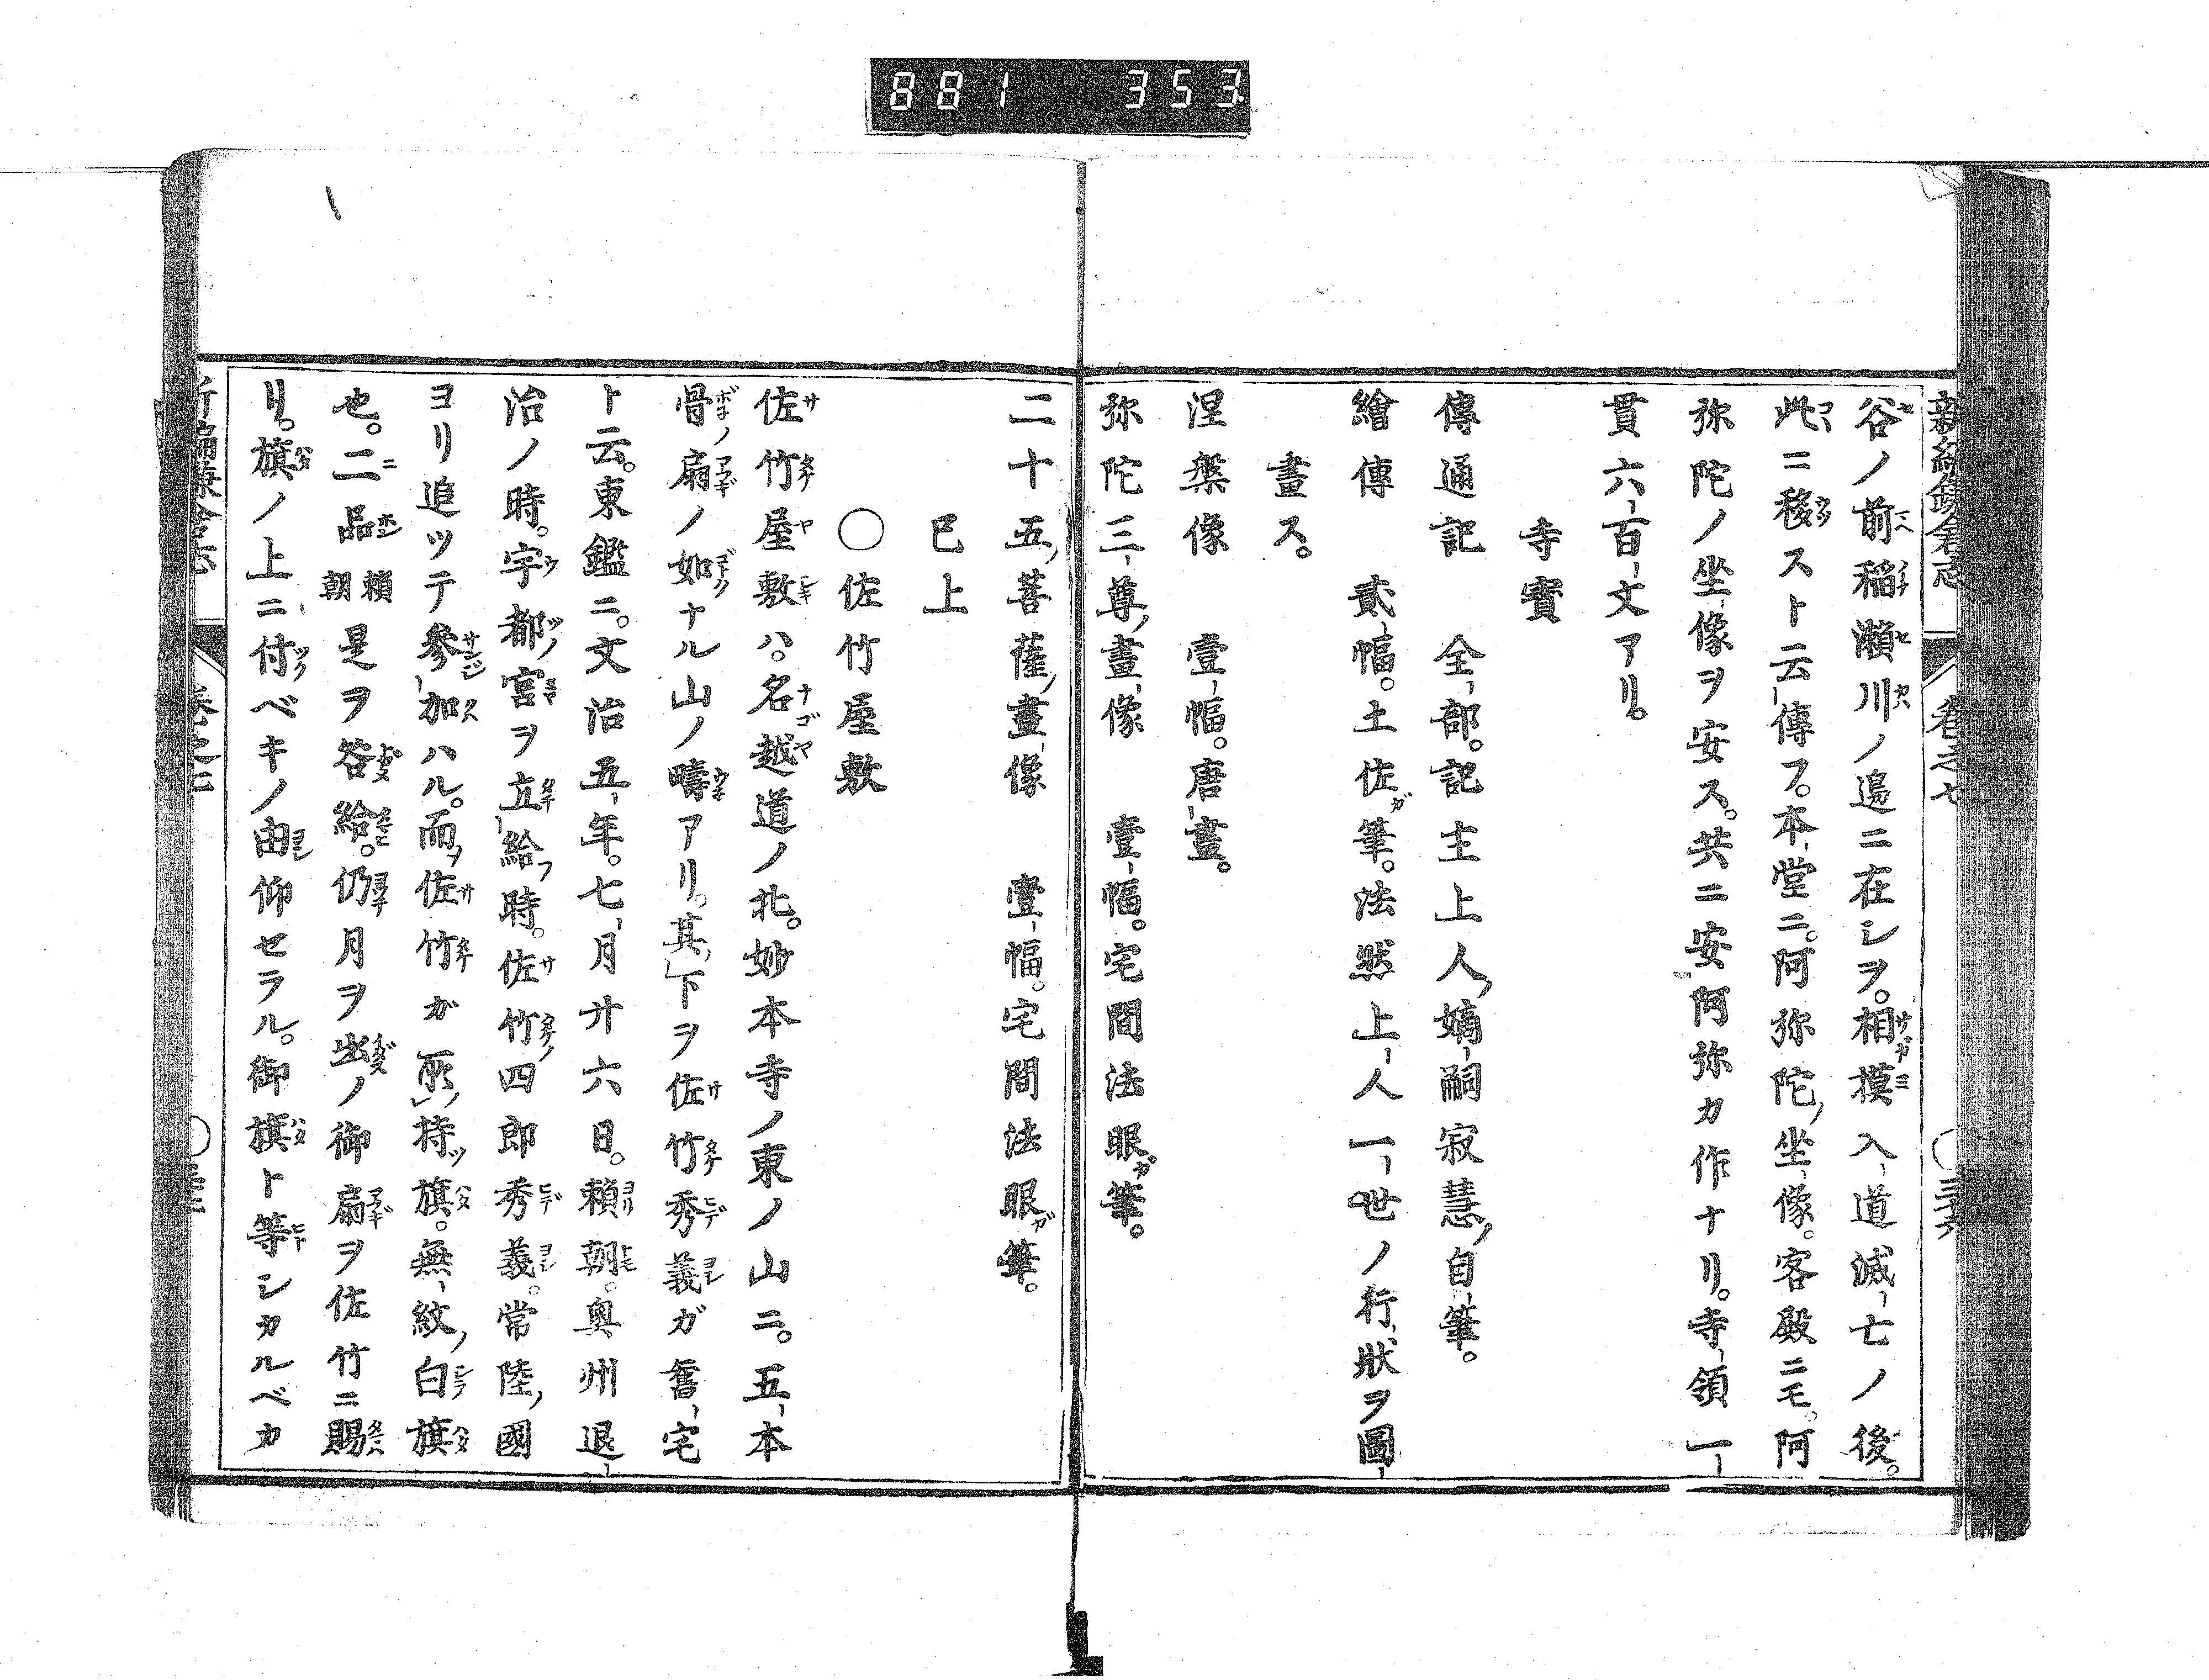 881 353
新編鎌倉志 卷之七 ○三十六
谷ノ前稲瀬川ノ邊ニ在シヲ。相摸入道滅亡ノ後。
此ニ移スト云傳フ。本堂ニ。阿弥陀ノ坐像。客殿ニモ。阿
弥陀ノ坐像ヲ安ス。共ニ安阿弥カ作ナリ。寺領一
貫六百文アリ。
寺寳
傳通記 全部。記主上人ノ嫡嗣寂慧ノ自筆。
繪傳 貳幅。土佐ガ筆。法然上人一世ノ行狀ヲ圖
畫ス。
涅槃像 壹幅。唐畫。
弥陀三尊ノ畫像 壹幅。宅間法眼ガ筆。
二十五ノ菩薩ノ畫像 壹幅。宅間法眼ガ筆。
已上
○佐竹屋敷
佐竹屋敷ハ。名越道ノ北。妙本寺ノ東ノ山ニ。五本
骨ノ扇ノ如ナル山ノ疇アリ。其下ヲ佐竹秀義ガ舊宅
ト云。東鑑ニ。文治五年。七月廿六日。頼朝。奥州退
治ノ時。宇都宮ヲ立給フ時。佐竹四郎秀義。常陸ノ國
ヨリ追ツテ參加ハル。而ヲ佐竹ガ所ノ持ツ旗。無紋ノ白旗
也。二品頼朝是ヲ咎給。仍月ヲ出ノ御扇ヲ佐竹ニ賜
リ。旗ノ上ニ付ベキノ由仰セラル。御旗ト等シカルベカ
新編鎌倉志 卷之七